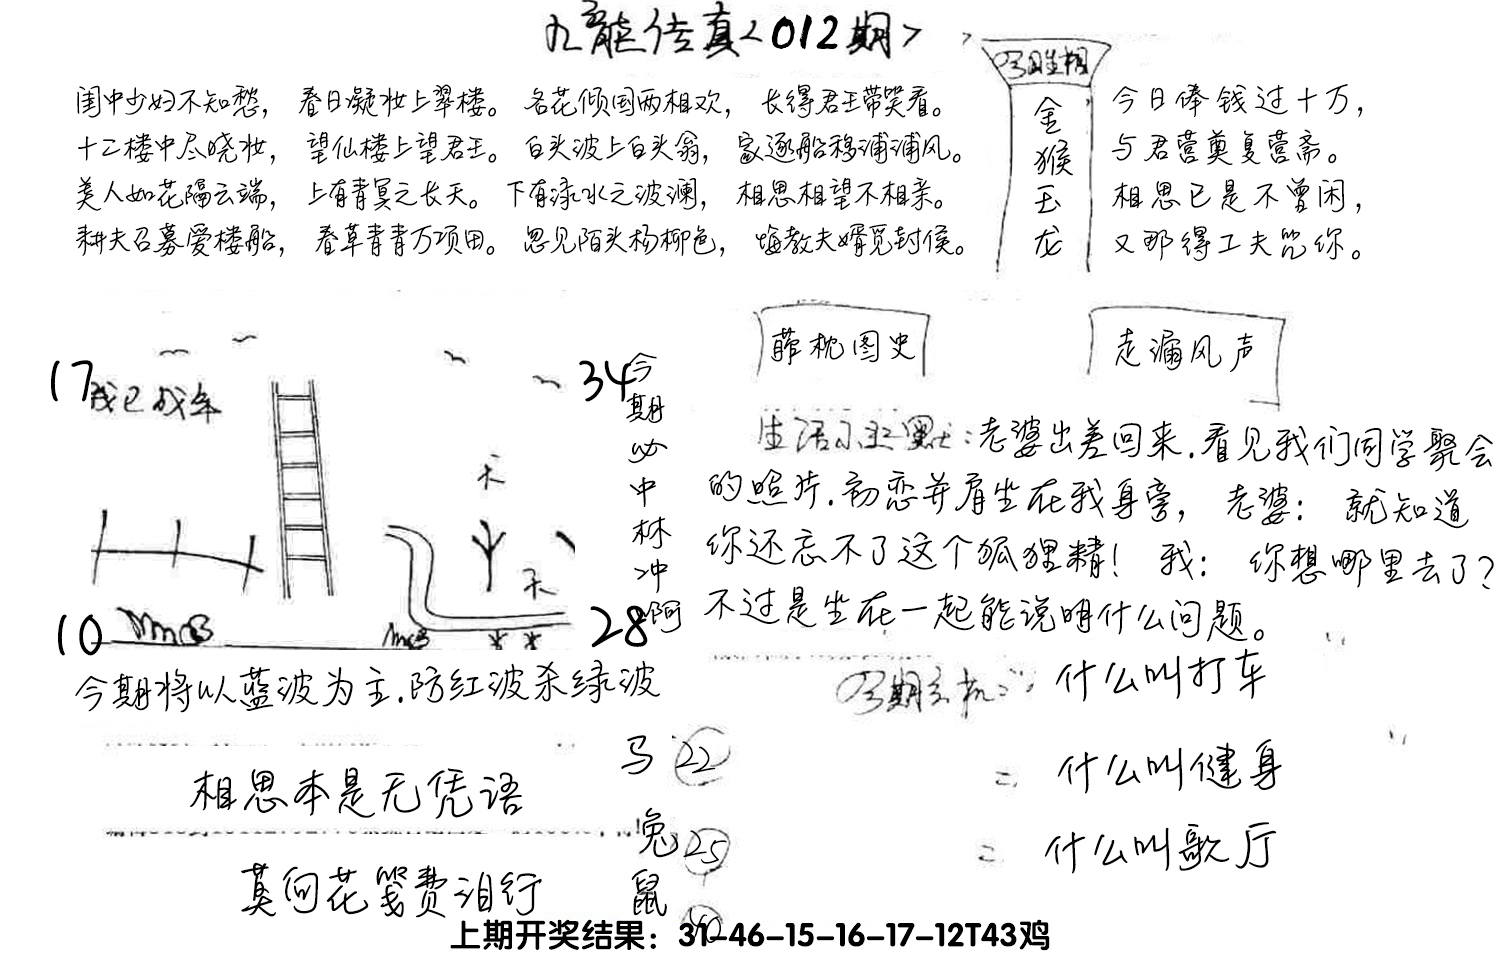 九龙传真<012期>
闺中少妇不知愁，春日凝妆上翠楼。名花倾国两相欢，长得君王带笑看。
十二楼中尽晓妆，望仙楼上望君王。白头波上白头翁，家逐船移浦浦风。
美人如花隔云端，上有青冥之长天。下有渌水之波澜，相思相望不相亲。
耕夫召募爱楼船，春草青青万项田。忽见陌头杨柳色，悔教夫婿觅封侯。
金猴玉龙
今日俸钱过十万，
与君营奠复营斋。
相思已是不曾闲，
又那得工夫咒你。
17
34
10
28
天
天
今期必中林冲啊
藉枕图史
走漏风声
生活小幽默：老婆出差回来.看见我们同学聚会
的照片.初恋并肩坐在我身旁，老婆：就知道
你还忘不了这个狐狸精！我：你想哪里去了？
不过是坐在一起能说明什么问题。
今期将以蓝波为主.防红波杀绿波
相思本是无凭语
莫向花笺费泪行
马 22
兔 25
鼠
今期玄机：什么叫打车
什么叫健身
什么叫歌厅
上期开奖结果：31-46-15-16-17-12T43鸡